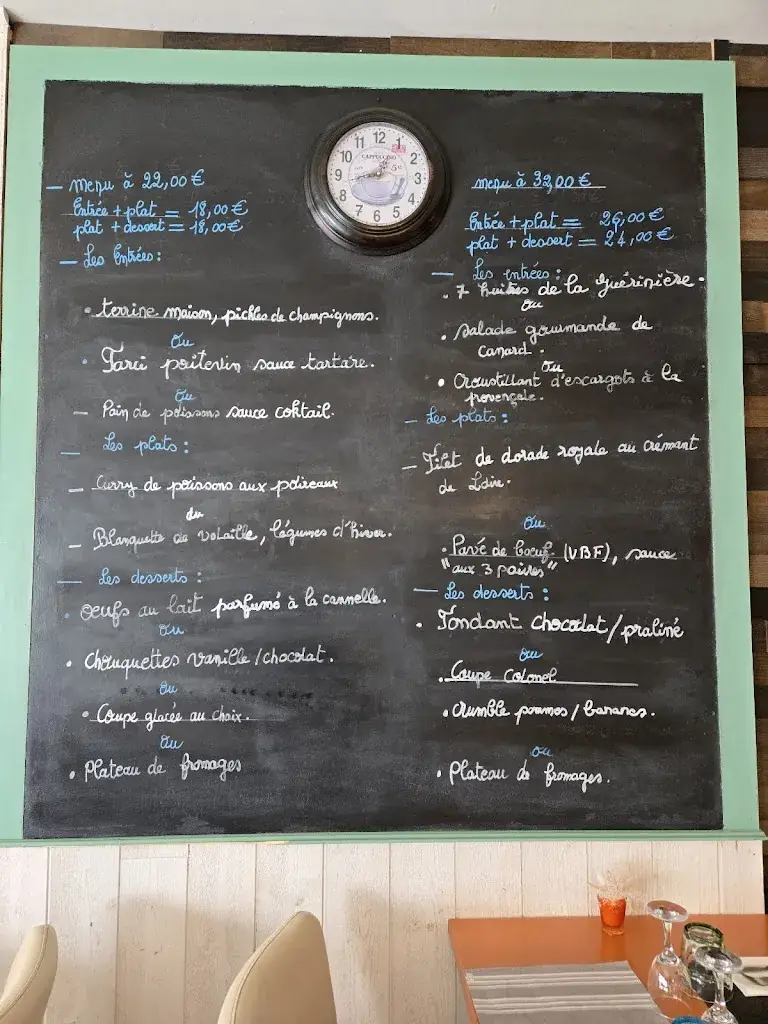 12
1
2
3
4
5
6
7
8
9
10
11
CAPPUCCINO
— menu à 22,00 €
Entrée + plat = 18,00 €
plat + dessert = 18,00 €
— Les Entrées :
• terrine maison, pickles de champignons.
ou
• Farci poitevin sauce tartare.
ou
— Pain de poissons sauce coktail.
— Les plats :
— Curry de poissons aux poireaux
ou
— Blanquette de volaille, légumes d'hiver.
— Les desserts :
• oeufs au lait parfumé à la cannelle.
ou
• Chouquettes vanille / chocolat.
ou
• Coupe glacée au choix.
ou
• Plateau de fromages
menu à 32,00 €
Entrée + plat = 26,00 €
plat + dessert = 24,00 €
— Les entrées :
• 7 huitres de la Guérinière.
ou
• Salade gourmande de
canard.
ou
• Croustillant d'escargots à la
provençale.
— Les plats :
— Filet de dorade royale au crémant
de Loire.
ou
• Pavé de boeuf (VBF), sauce
"aux 3 poivres"
— Les desserts :
• Fondant chocolat / praliné
ou
• Coupe Colonel
• Crumble pommes / bananes.
ou
• Plateau de fromages.